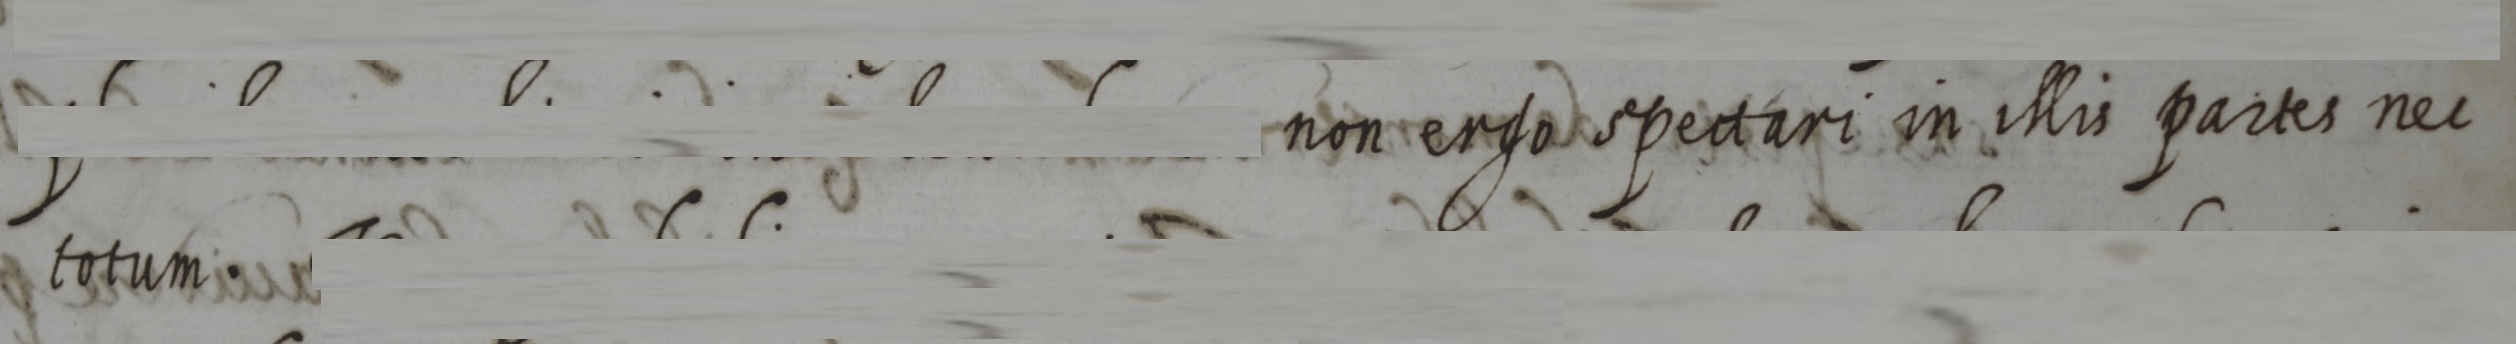 non ergo spectari in illis partes nec
totum.